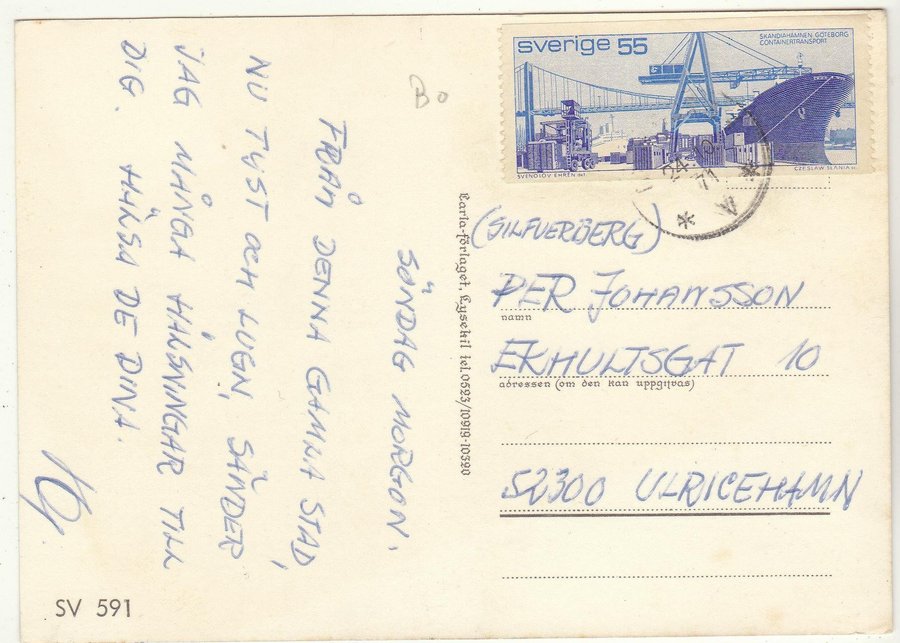 SÖNDAG MORGON,
FRÅN DENNA GAMLA STAD,
NU TYST OCH LUGN, SÄNDER
JAG MÅNGA HÄLSNINGAR TILL
DIG. HÄLSA DE DINA.
SV 591
Bo
Carla-förlaget, Lysekil tel. 0523/10919-10320
sverige 55
SKANDIAHAMNEN GÖTEBORG
CONTAINERTRANSPORT
SVENOLOV EHRÉN del.
CZESLAW SLANIA sc.
24
71
(SILFVERBERG)
PER JOHANSSON
namn
EKHULTSGAT 10
adressen (om den kan uppgivas)
52300 ULRICEHAMN